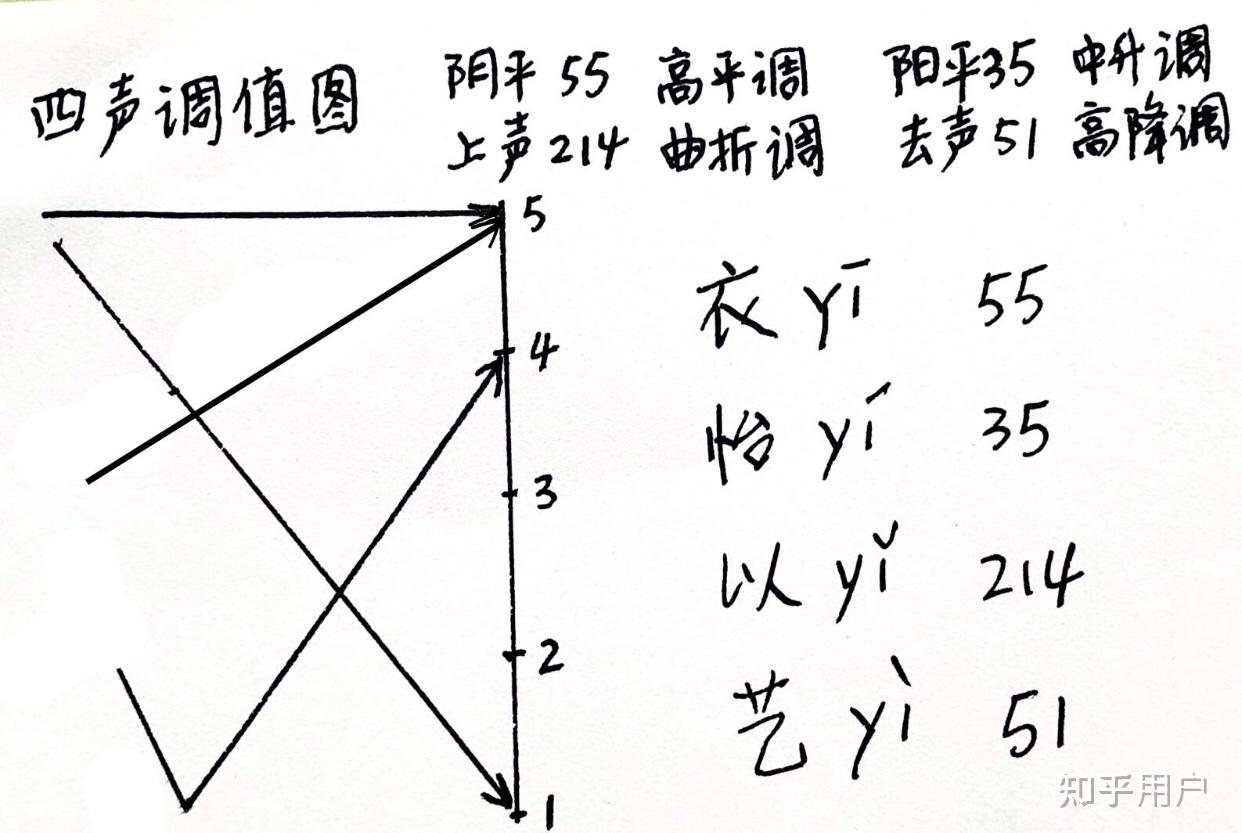 四声调值图
阴平 55 高平调 阳平35 中升调
上声 214 曲折调 去声 51 高降调
5
4
3
2
1
衣 yī 55
怡 yí 35
以 yǐ 214
艺 yì 51
知乎用户